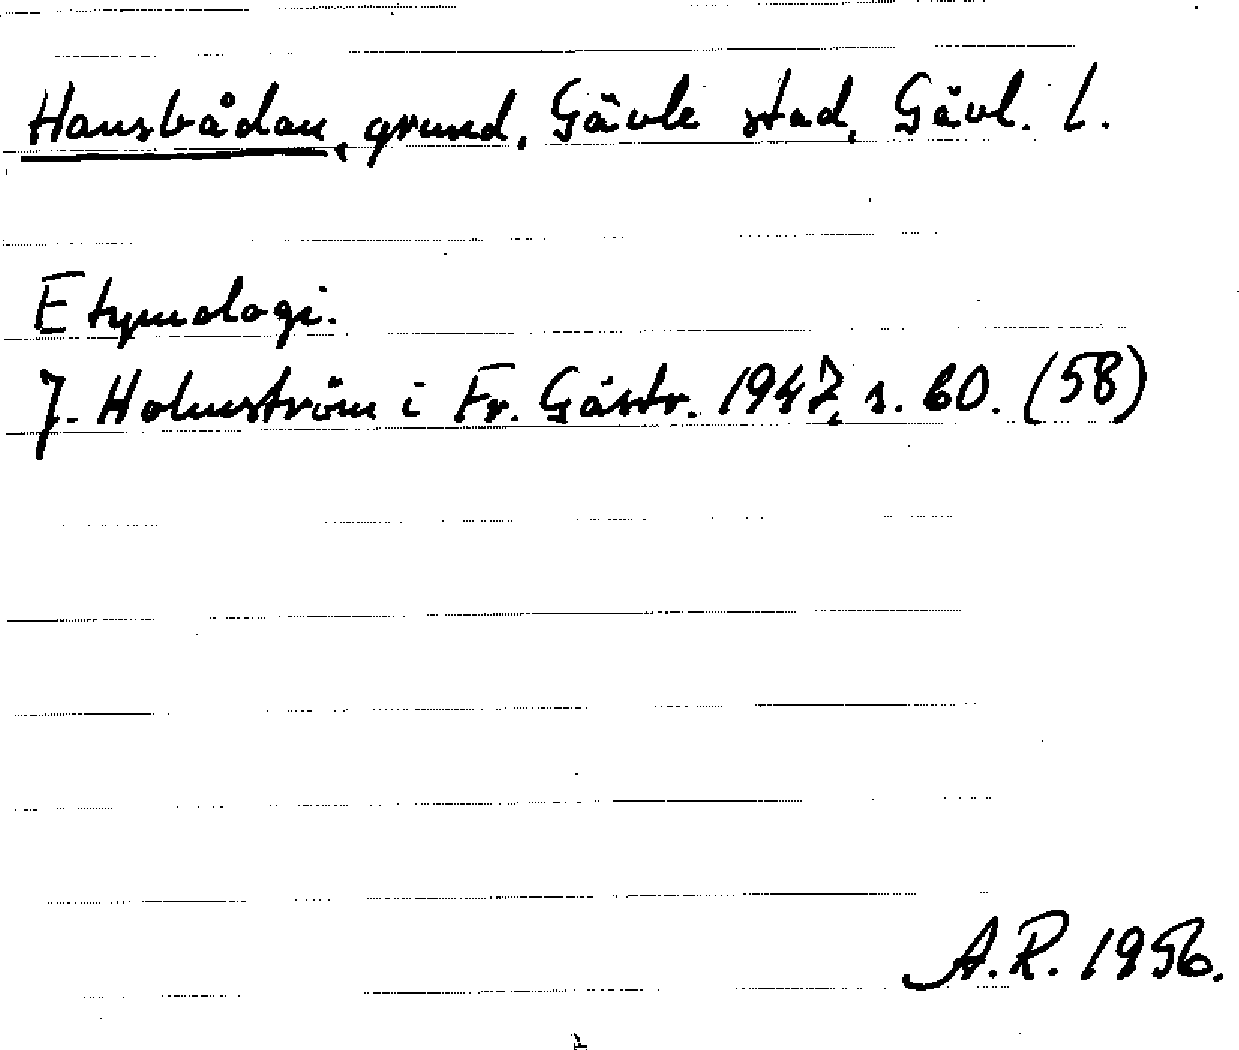 Hansbådan, grund, Gävle stad, Gävl. l.
Etymologi.
J. Holmström i Fr. Gästr. 1947, s. 60. (58)
A.R. 1956.